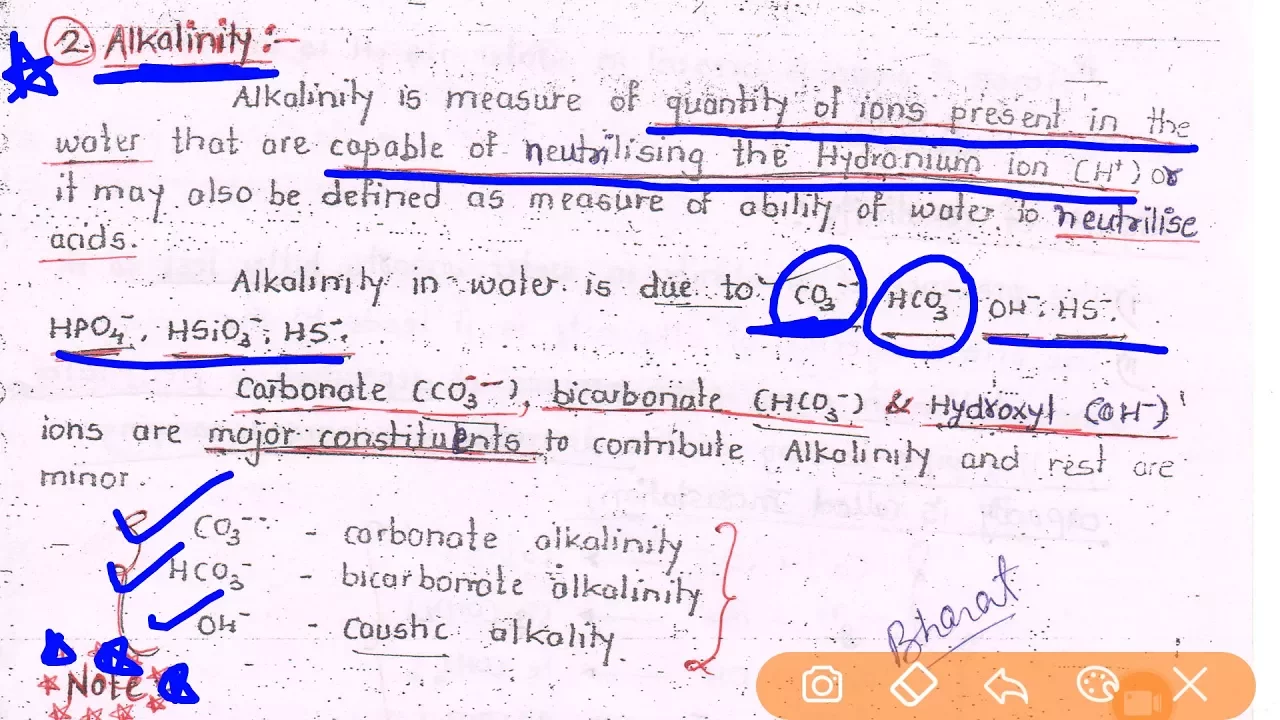 2. Alkalinity :-
Alkalinity is measure of quantity of ions present in the
water that are capable of neutrilising the Hydronium ion (H⁺) or
it may also be defined as measure of ability of water to neutrilise
acids.
Alkalinity in water is due to CO₃⁻⁻, HCO₃⁻, OH⁻, HS⁻.
HPO₄⁻, HSiO₃⁻, HS⁻.
Carbonate (CO₃⁻⁻), bicarbonate (HCO₃⁻) & Hydroxyl (OH⁻)
ions are major constituents to contribute Alkalinity and rest are
minor.
CO₃⁻⁻ - carbonate alkalinity
HCO₃⁻ - bicarbonate alkalinity
OH⁻ - caustic alkality.
Bharat
Note